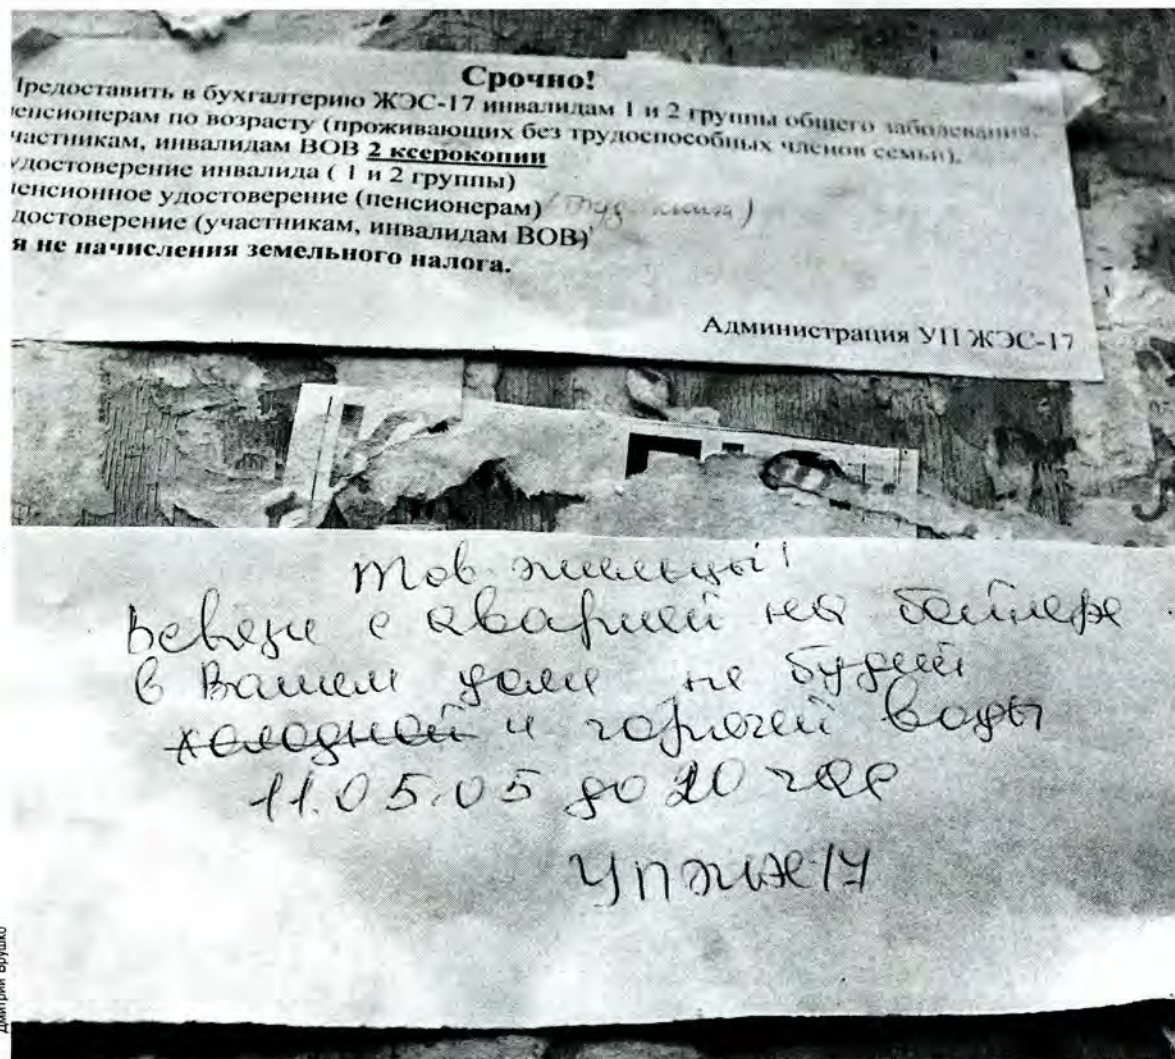 Срочно!
Предоставить в бухгалтерию ЖЭС-17 инвалидам 1 и 2 группы общего заболевания,
пенсионерам по возрасту (проживающих без трудоспособных членов семьи),
частникам, инвалидам ВОВ 2 ксерокопии
удостоверение инвалида ( 1 и 2 группы)
пенсионное удостоверение (пенсионерам)
достоверение (участникам, инвалидам ВОВ)
я не начисления земельного налога.
Администрация УП ЖЭС-17
Тов. жильцы!
в связи с аварией на бойлере
в Вашем доме не будет
холодной и горячей воды
11.05.05 до 20 час
УП ЖЭС 17
Дмитрий Брушко